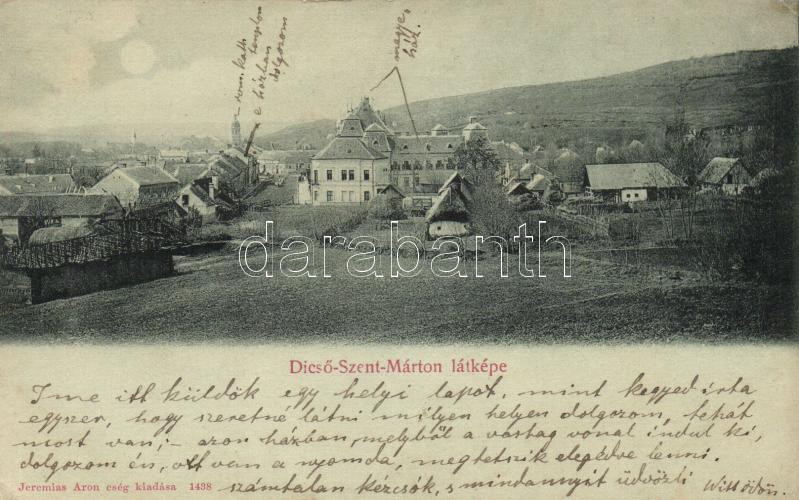 rom. kath.
templom
e házban
dolgozom
megye
ház.
darabanth
Dicső-Szent-Márton látképe
Ime itt küldök egy helyi lapot, mint kegyed irta
egyszer, hogy szeretné látni milyen helyen dolgozom, tehát
most van; - azon házban, melyből a vastag vonal indul ki,
dolgozom én, ott van a nyomda, megtetszik elégedve lenni.
Jeremias Aron cség kiadása 1438
számtalan kézcsók, s mindannyit üdvözli Witt Ödön.